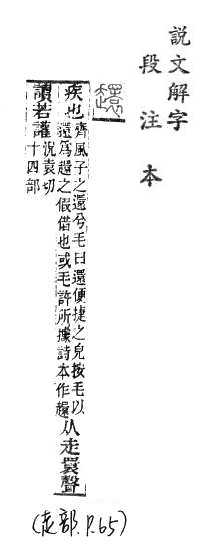 說文解字
段注本
趮
疾也齊風子之還兮毛曰還便捷之皃按毛以
還爲趮之假借也或毛許所據詩本作趮从走瞏聲
讀若讙況袁切
十四部
(走部.P.65)